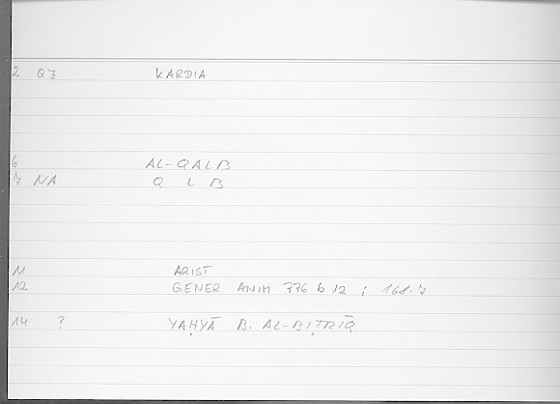 2 QJ KARDIA
6 AL-QALB
7 NA Q L B
11 ARIST
12 GENER ANIM 776 b 12 ; 168.7
14 ? YAḤYĀ B. AL-BIṬRĪQ